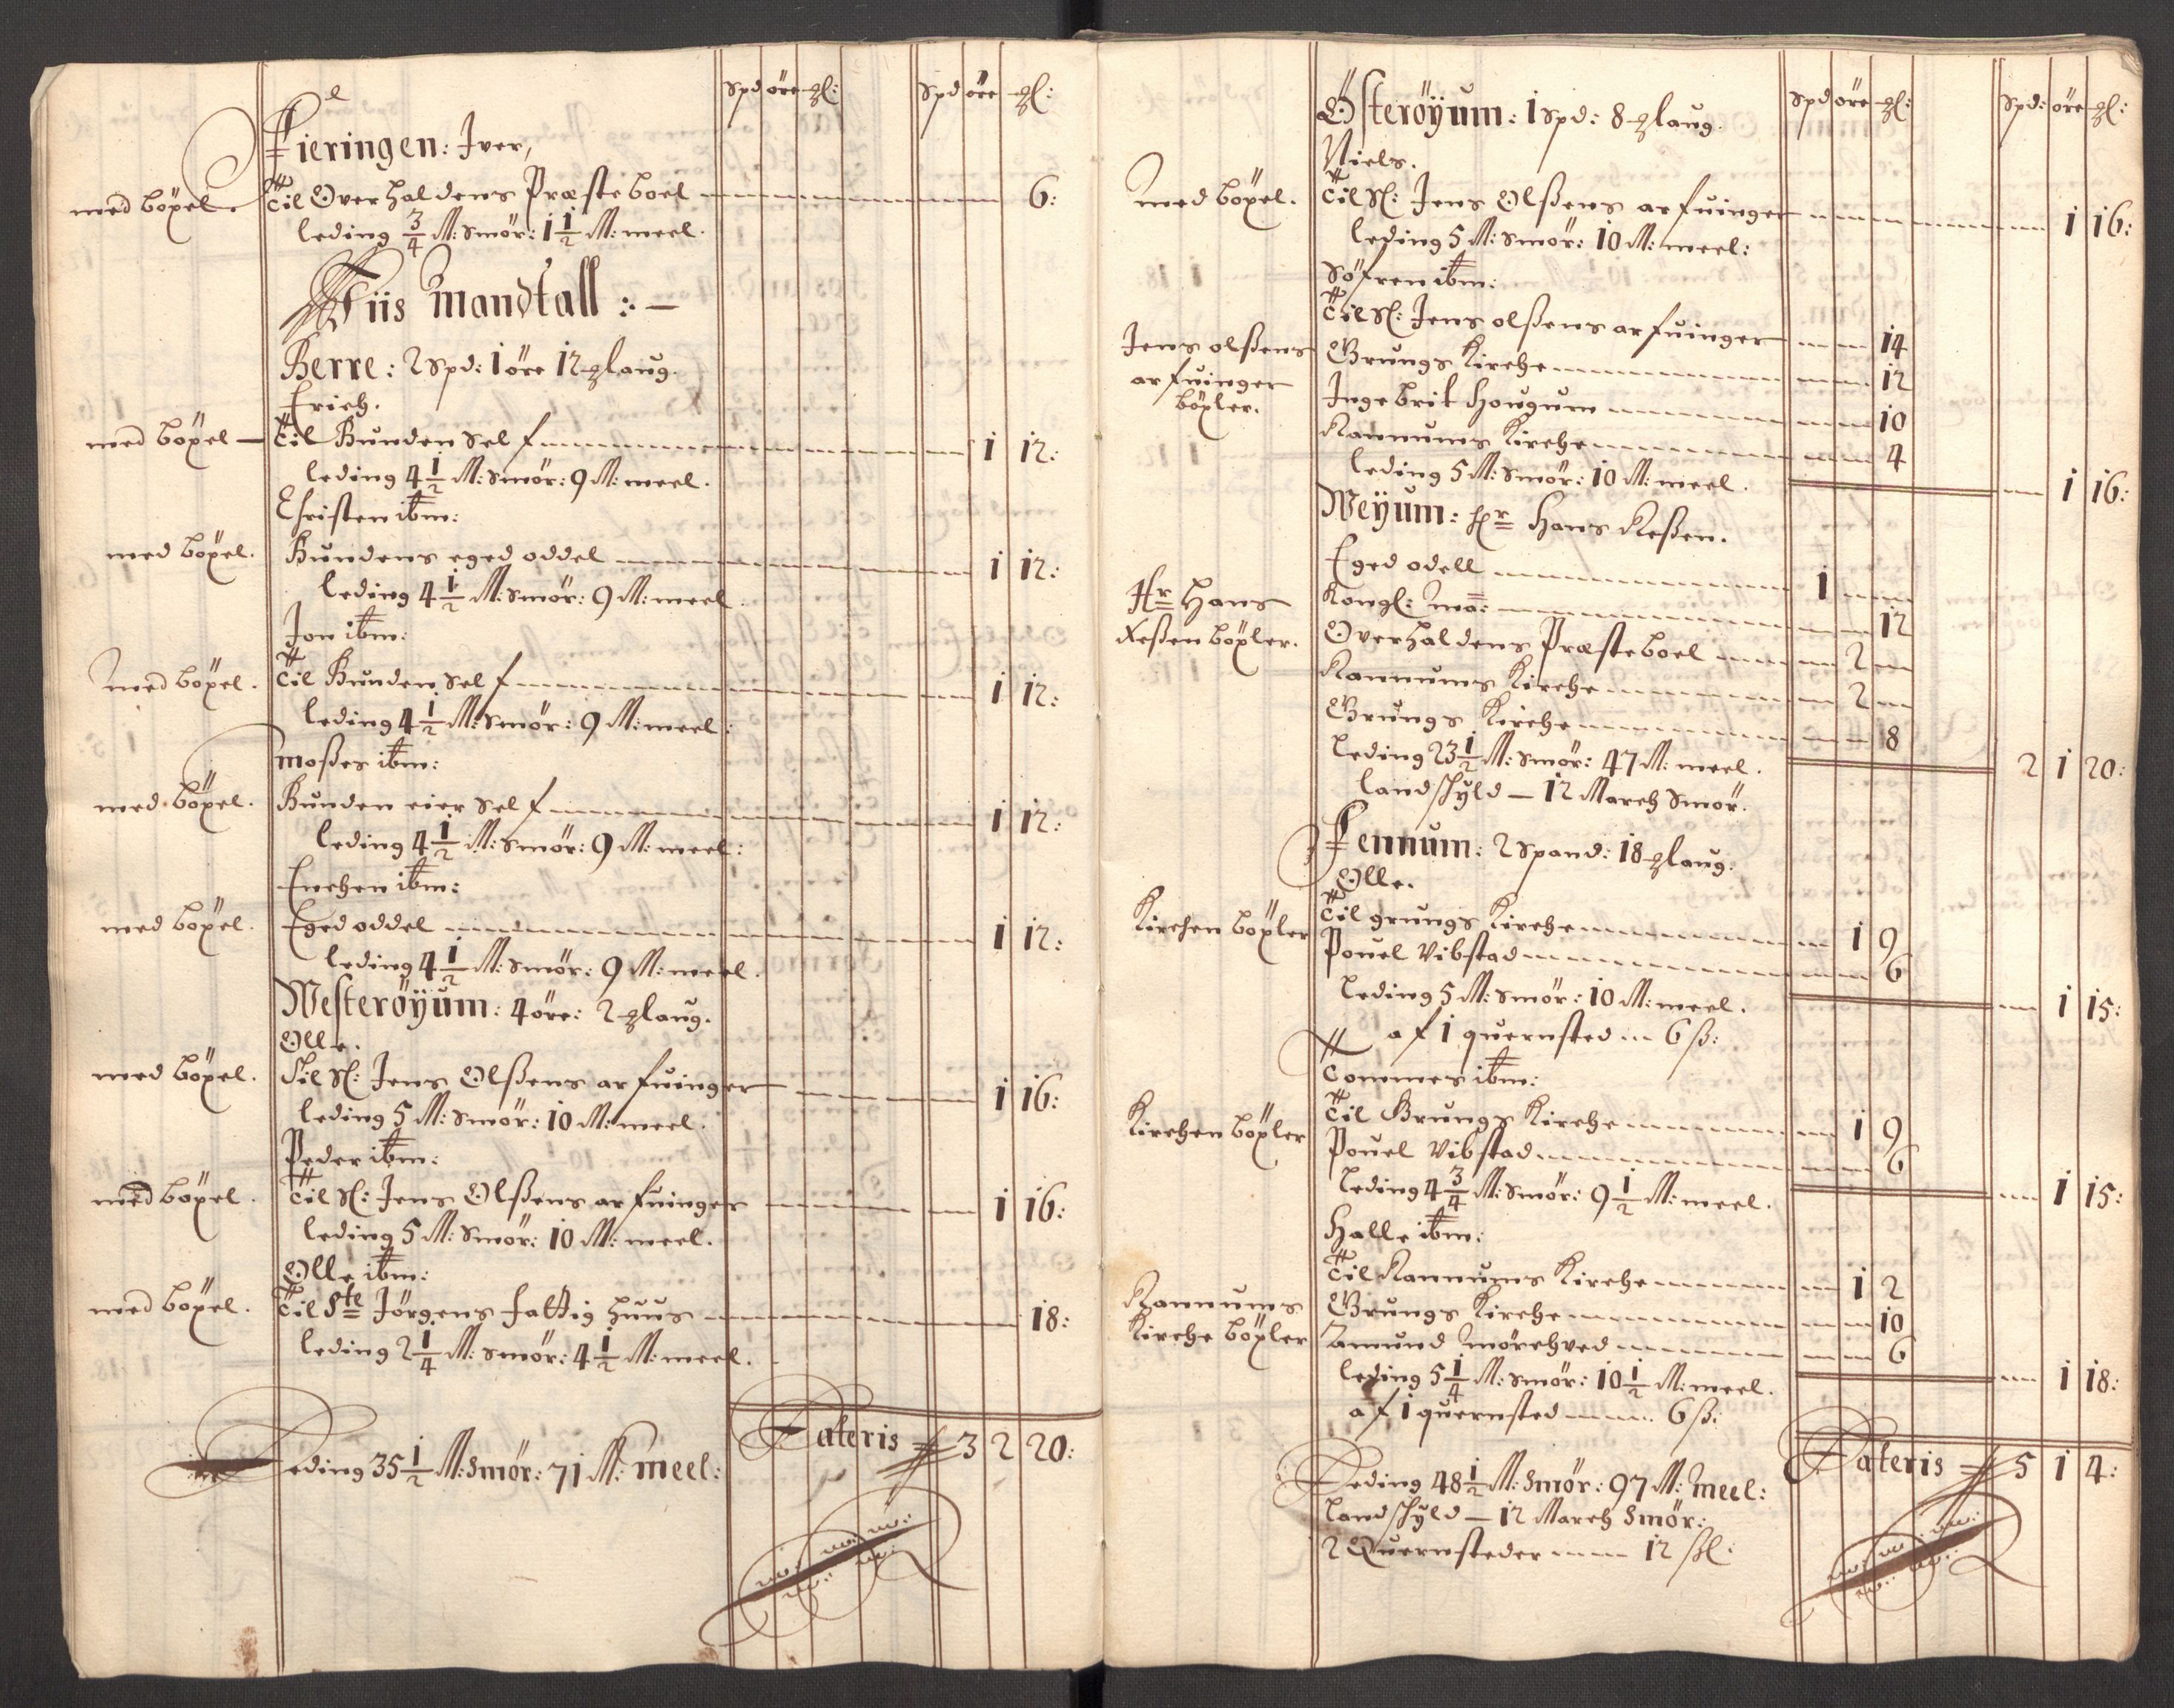 Spd öre gl: Spd öre gl:
Fieringen: Iver,
med böxel. Til Overhaldens Præsteboel 6:
leding 3/4 M: Smör: 1 1/2 M: meel.
Fiis Mandtall :-
Berre: 2 Spd: 1 öre 12 glaug.
Erich.
med böxel - Til Bunden self 1 12:
leding 4 1/2 M: Smör: 9 M: meel.
Christen ibm:
med böxel. Bundens eged oddel 1 12:
leding 4 1/2 M: Smör: 9 M: meel.
Jon ibm:
med böxel. Til Bunden self 1 12:
leding 4 1/2 M: Smör: 9 M: meel:
Moßes ibm:
med böxel. Bunden eier self 1 12:
leding 4 1/2 M: Smör: 9 M: meel:
Enchen ibm:
med böxel. Eged oddel 1 12:
leding 4 1/2 M: Smör: 9 M: meel.
Westeröyum: 4 öre: 2 glaug.
Olle.
med böxel. Til Sl: Jens Olßens arfuinger 1 16:
leding 5 M: Smör: 10 M: meel.
Peder ibm:
med böxel. Til Sl: Jens Olßens arfuinger 1 16:
leding 5 M: Smör: 10 M: meel.
Olle ibm:
med böxel. Til Ste Jörgens fattig huus 18:
leding 2 1/4 M: Smör: 4 1/2 M: meel.
Lateris 3 2 20:
Leding 35 1/2 M: Smör: 71 M: meel:
Spd öre gl: Spd: öre gl:
Österöyum: 1 Spd: 8 glaug.
Niels.
med böxel. Til Sl: Jens Olßens arfuinger 1 16:
leding 5 M: Smör: 10 M: meel:
Söfren ibm:
Til Sl: Jens olßens arfuinger 14
Jens olßens arfuinger böxler. Grungs Kirche 12
Ingebrit Hougum 10
Rannums Kirche 4
leding 5 M: Smör: 10 M: meel. 1 16:
Weyum: Hr Hans Reßen.
Eged odell 1
Hr Hans Reßen böxler. Kongl: Ma: 12
Overhaldens Præsteboel 2
Rannums Kirche 2
Grungs Kirche 8
leding 23 1/2 M: Smör: 47 M: meel. 2 1 20:
landskyld - 12 March Smör.
Fennum: 2 Spand: 18 glaug.
Olle.
Kirchen böxler Til grungs Kirche 1 9
Pouel Vibstad 6
leding 5 M: Smör: 10 M: meel. 1 15:
af 1 quernsted 6 ß:
Tommes ibm:
Kirchen böxler Til Grungs Kirche 1 9
Pouel Vibstad 6
leding 4 3/4 M: Smör: 9 1/2 M: meel. 1 15:
Halle ibm:
Til Rannums Kirche 1 2
Rannums Kirche böxler Grungs Kirche 10
Amund Mörchved 6
leding 5 1/4 M: Smör: 10 1/2 M: meel. 1 18:
af 1 quernsted 6 ß:
Lateris 5 1 4:
Leding 48 1/2 M: Smör: 97 M: Meel:
Landskyld - 12 March Smör:
2 Quernsteder 12 ßl: